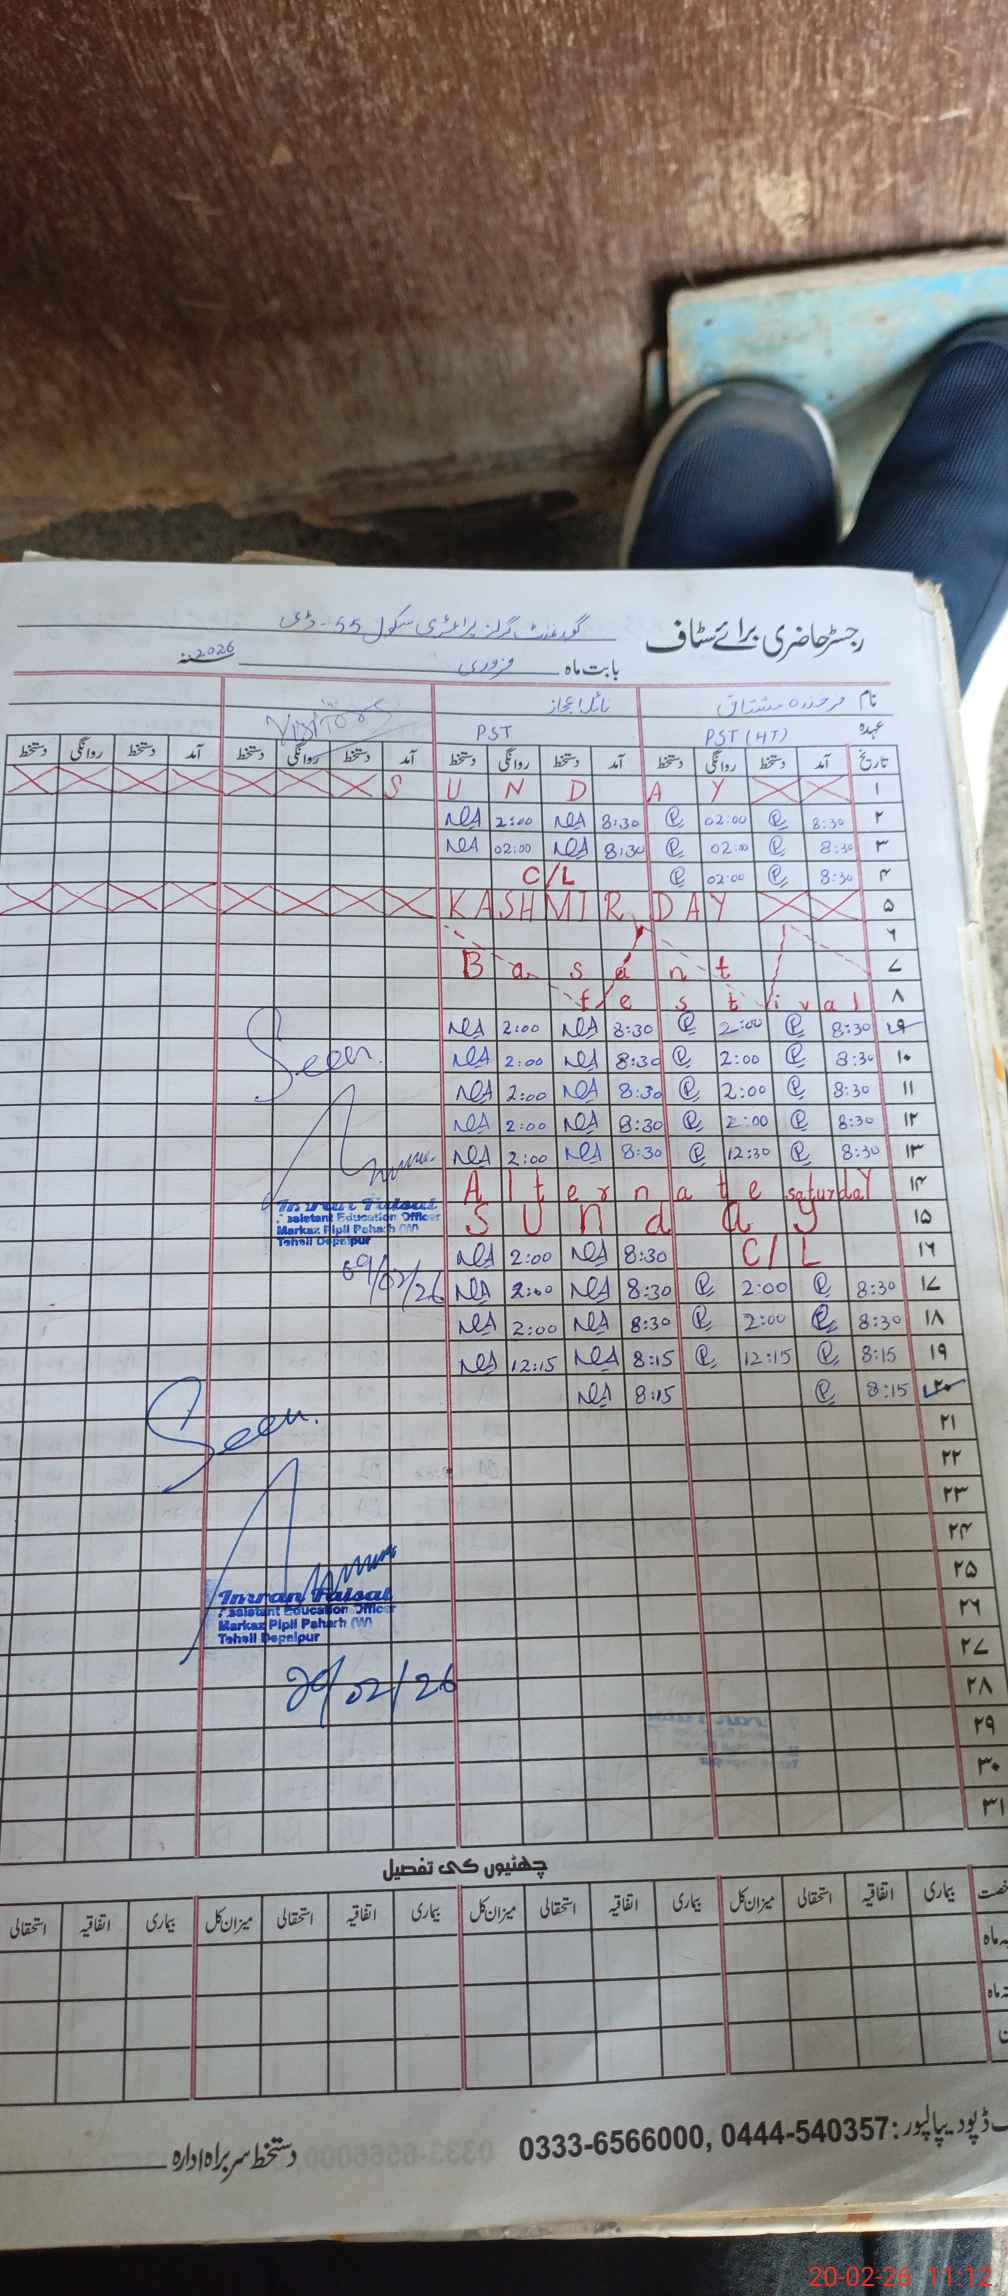 رجسٹر حاضری برائے سٹاف گورنمنٹ گرلز پرائمری سکول 55-ڈی
بابت ماہ فروری سنہ 2026
نام فرخندہ مشتاق نائلہ اعجاز Visitors
عہدہ PST (HT) PST
تاریخ آمد دستخط روانگی دستخط آمد دستخط روانگی دستخط آمد دستخط روانگی دستخط آمد دستخط روانگی دستخط
۱ S U N D A Y
۲ 8:30 02:00 8:30 2:00
۳ 8:30 02:00 8:30 02:00
۴ 8:30 02:00 C/L
۵ KASHMIR DAY
۶
۷ Basant
۸ festival
۹ 8:30 2:00 8:30 2:00
۱۰ 8:30 2:00 8:30 2:00
Seen
۱۱ 8:30 2:00 8:30 2:00
۱۲ 8:30 2:00 8:30 2:00
۱۳ 8:30 12:30 8:30 2:00
۱۴ Alternate saturday
۱۵ Sunday
Imran Faisal
Assistant Education Officer
Markaz Pipli Paharh (W)
Tehsil Depalpur
09/02/26
۱۶ C/L 8:30 2:00
۱۷ 8:30 2:00 8:30 2:00
۱۸ 8:30 2:00 8:30 2:00
۱۹ 8:15 12:15 8:15 12:15
۲۰ 8:15 8:15
Seen
۲۱
۲۲
۲۳
۲۴
۲۵
۲۶
Imran Faisal
Assistant Education Officer
Markaz Pipli Paharh (W)
Tehsil Depalpur
۲۷
20/02/26
۲۸
۲۹
۳۰
۳۱
چھٹیوں کی تفصیل
بیماری اتفاقیہ استحقاقی میزان کل بیماری اتفاقیہ استحقاقی میزان کل بیماری اتفاقیہ استحقاقی میزان کل بیماری اتفاقیہ استحقاقی
ماہ
ماہ
ڈپو دیپالپور: 0333-6566000, 0444-540357
دستخط سربراہ ادارہ
20-02-26 11:12